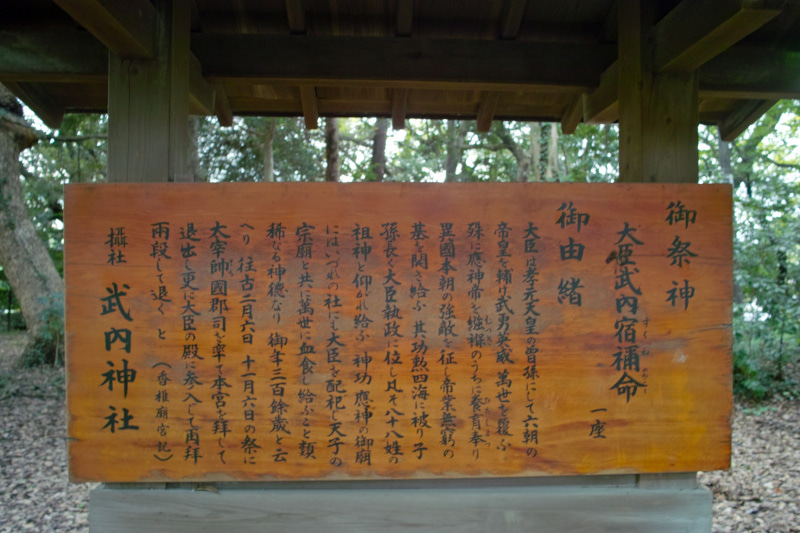 御祭神
大臣武内宿禰命 一座
すくね みこと
御由緒
大臣は孝元天皇の曽孫にして六朝の
帝皇を輔け武勇英威 萬世を覆ふ
殊に應神帝を襁褓のうちに養育奉り
異國本朝の強敵を征し帝業無窮の
基を開き給ふ 其功勲四海に被り子
孫長く大臣執政に位し凡そ八十八姓の
祖神と仰がれ給ふ 神功 應神の御廟
にはいづれの社にも大臣を配祀し天子の
宗廟と共に萬世に血食し給ふこと類
稀なる神徳なり 御年三百餘歳と云
へり 往古二月六日 十一月六日の祭に
太宰帥國郡司を率て本宮を拜して
退出し更に大臣の殿に参入して両拜
兩段して退く と (香椎廟宮記)
攝社 武內神社